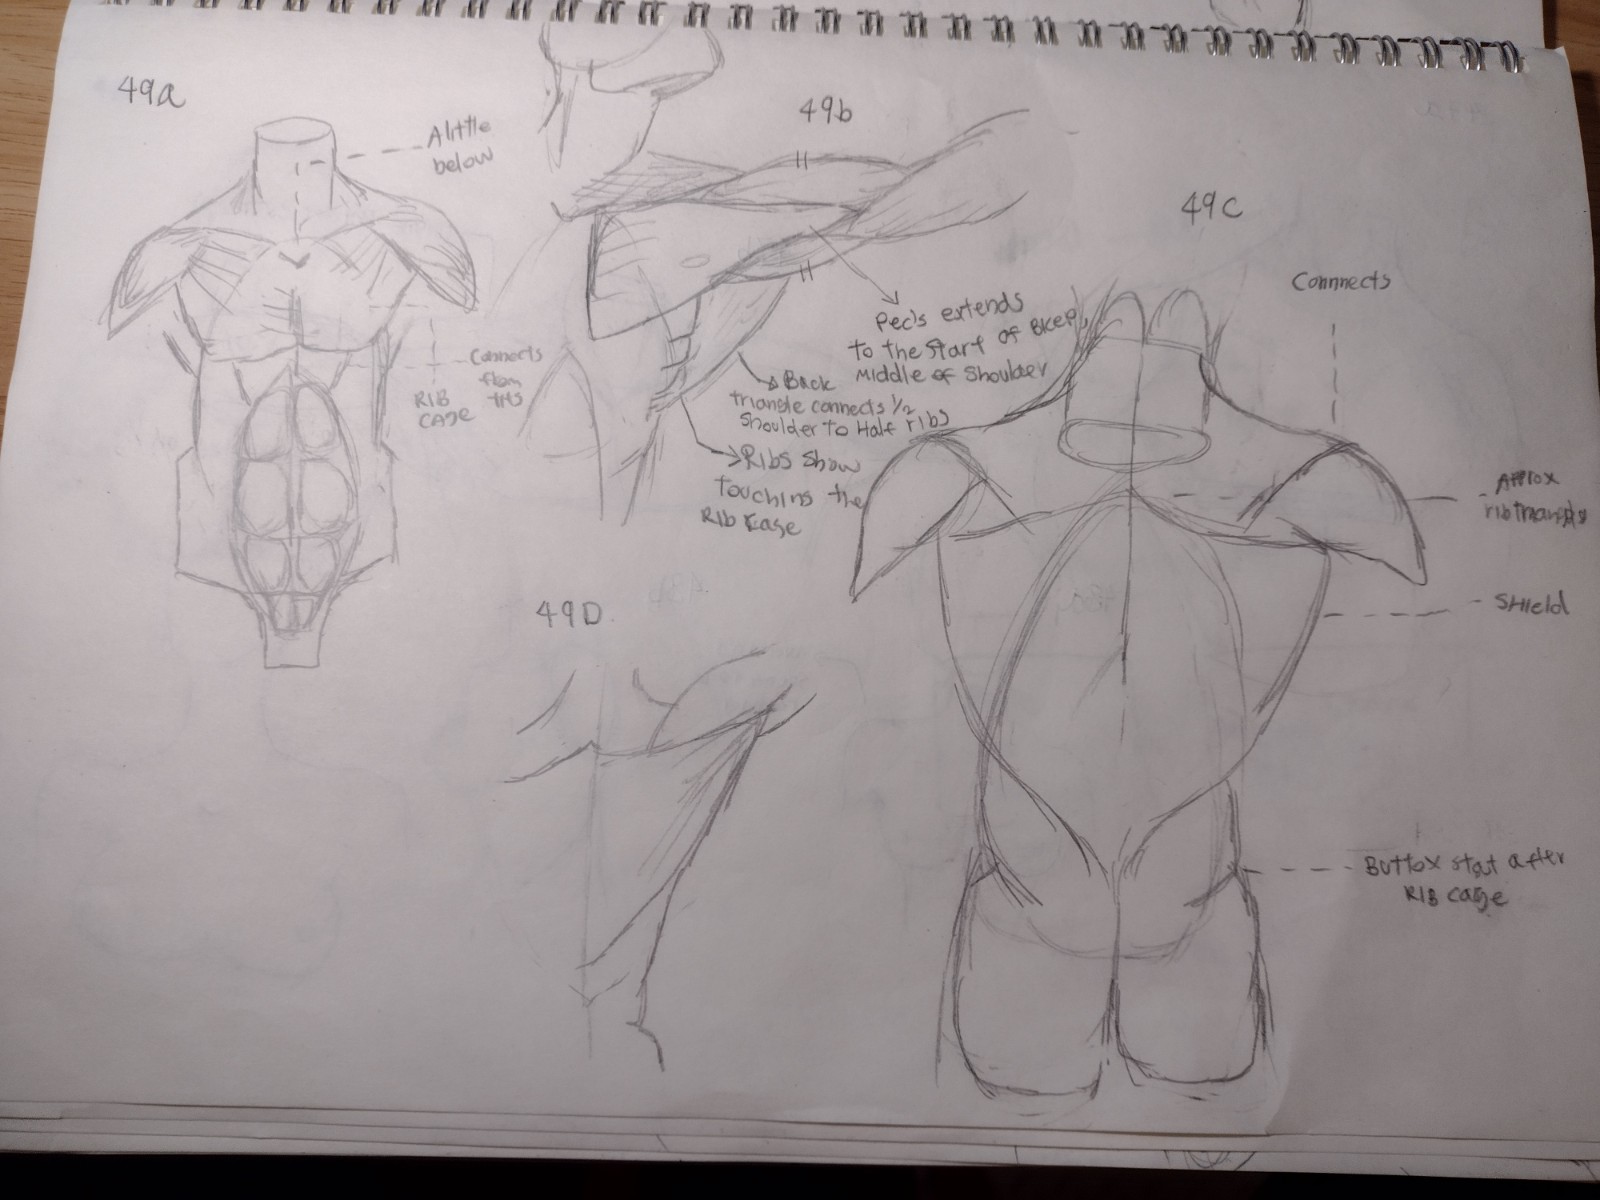 49a
A little
below
Connects
from
this
RIB
CAGE
49b
Pecs extends
to the start of Bicep,
Middle of Shoulder
Back
triangle connects 1/2
Shoulder to Half ribs
Ribs Show
touching the
Rib Cage
49c
Connnects
Approx
SHield
Buttox start after
RIB cage
49D